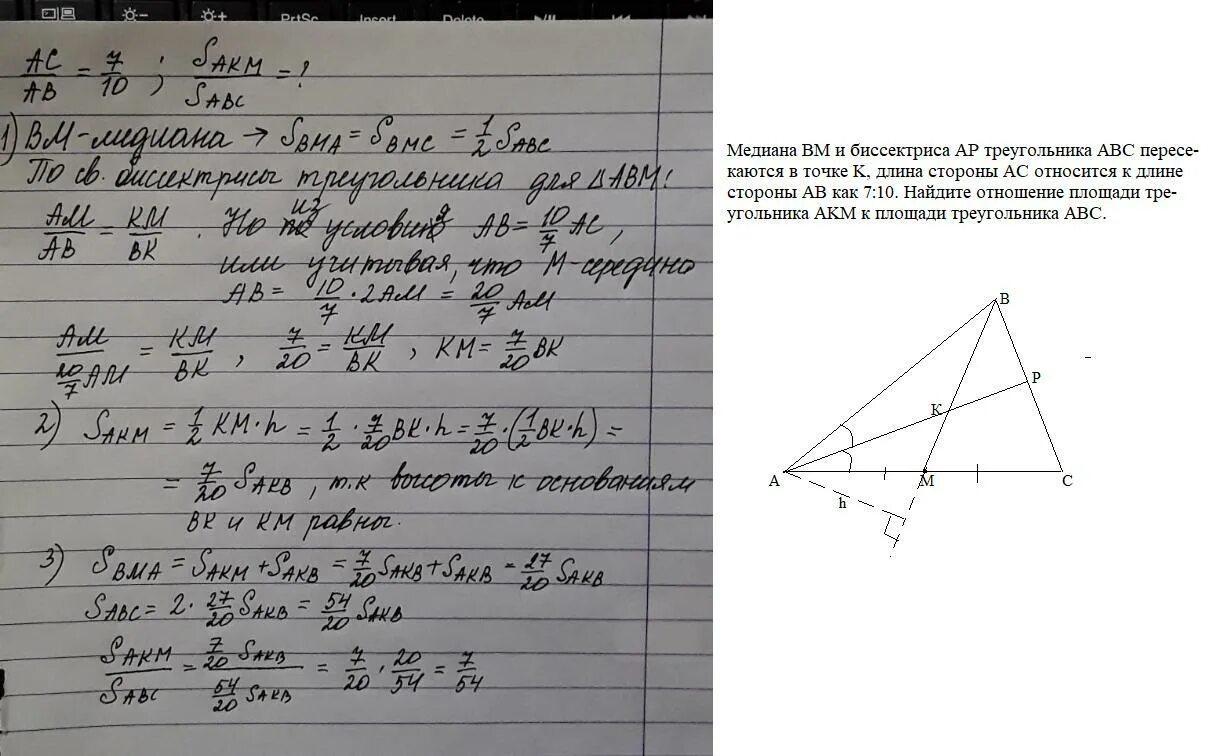 PrtSc Insert Delete
AC/AB = 7/10 ; S_AKM/S_ABC = ?
1) BM-медиана → S_BMA = S_BMC = 1/2 S_ABC
По св. биссектрисы треугольника для ΔABM:
AM/AB = KM/BK . Но из условия AB = 10/7 AC,
или учитывая, что M-середина
AB = 10/7 · 2AM = 20/7 AM
AM/(20/7 AM) = KM/BK , 7/20 = KM/BK , KM = 7/20 BK
2) S_AKM = 1/2 KM·h = 1/2 · 7/20 BK·h = 7/20 · (1/2 BK·h) =
= 7/20 S_AKB , т.к высоты к основаниям
BK и KM равны.
3) S_BMA = S_AKM + S_AKB = 7/20 S_AKB + S_AKB = 27/20 S_AKB
S_ABC = 2 · 27/20 S_AKB = 54/20 S_AKB
S_AKM/S_ABC = (7/20 S_AKB)/(54/20 S_AKB) = 7/20 · 20/54 = 7/54
Медиана BM и биссектриса AP треугольника ABC пересе-
каются в точке K, длина стороны AC относится к длине
стороны AB как 7:10. Найдите отношение площади тре-
угольника AKM к площади треугольника ABC.
B
P
K
A
M
C
h